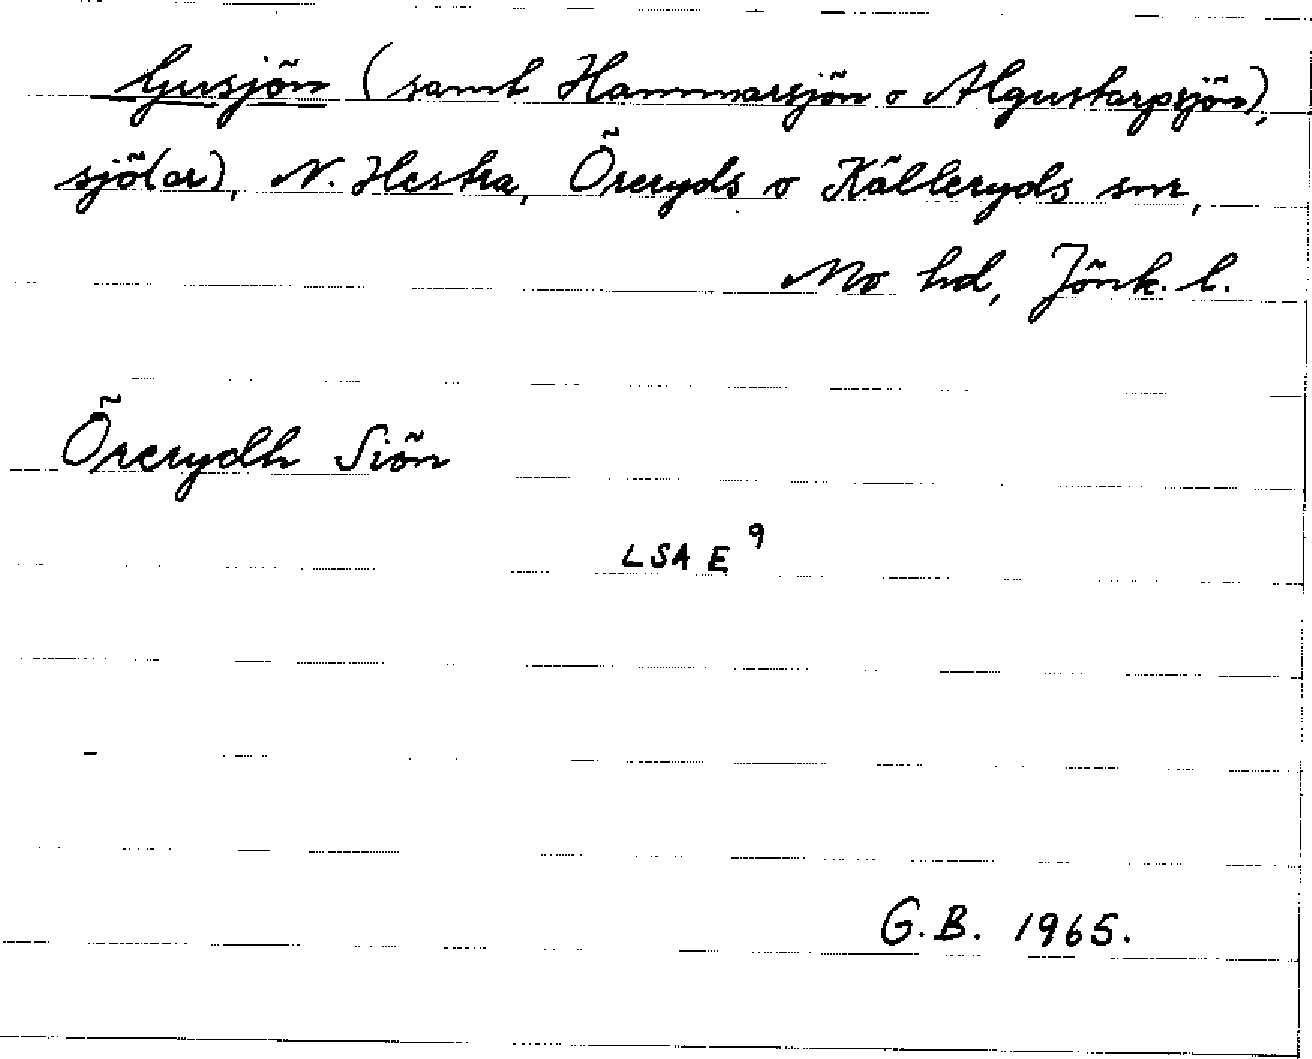 Gusjön (samt Hammarsjön o Algustarpsjön),
sjö(ar), N. Hestra, Öreryds o Källeryds snr,
Mo hd, Jönk. l.
Örerydh Siön
LSA E⁹
G.B. 1965.